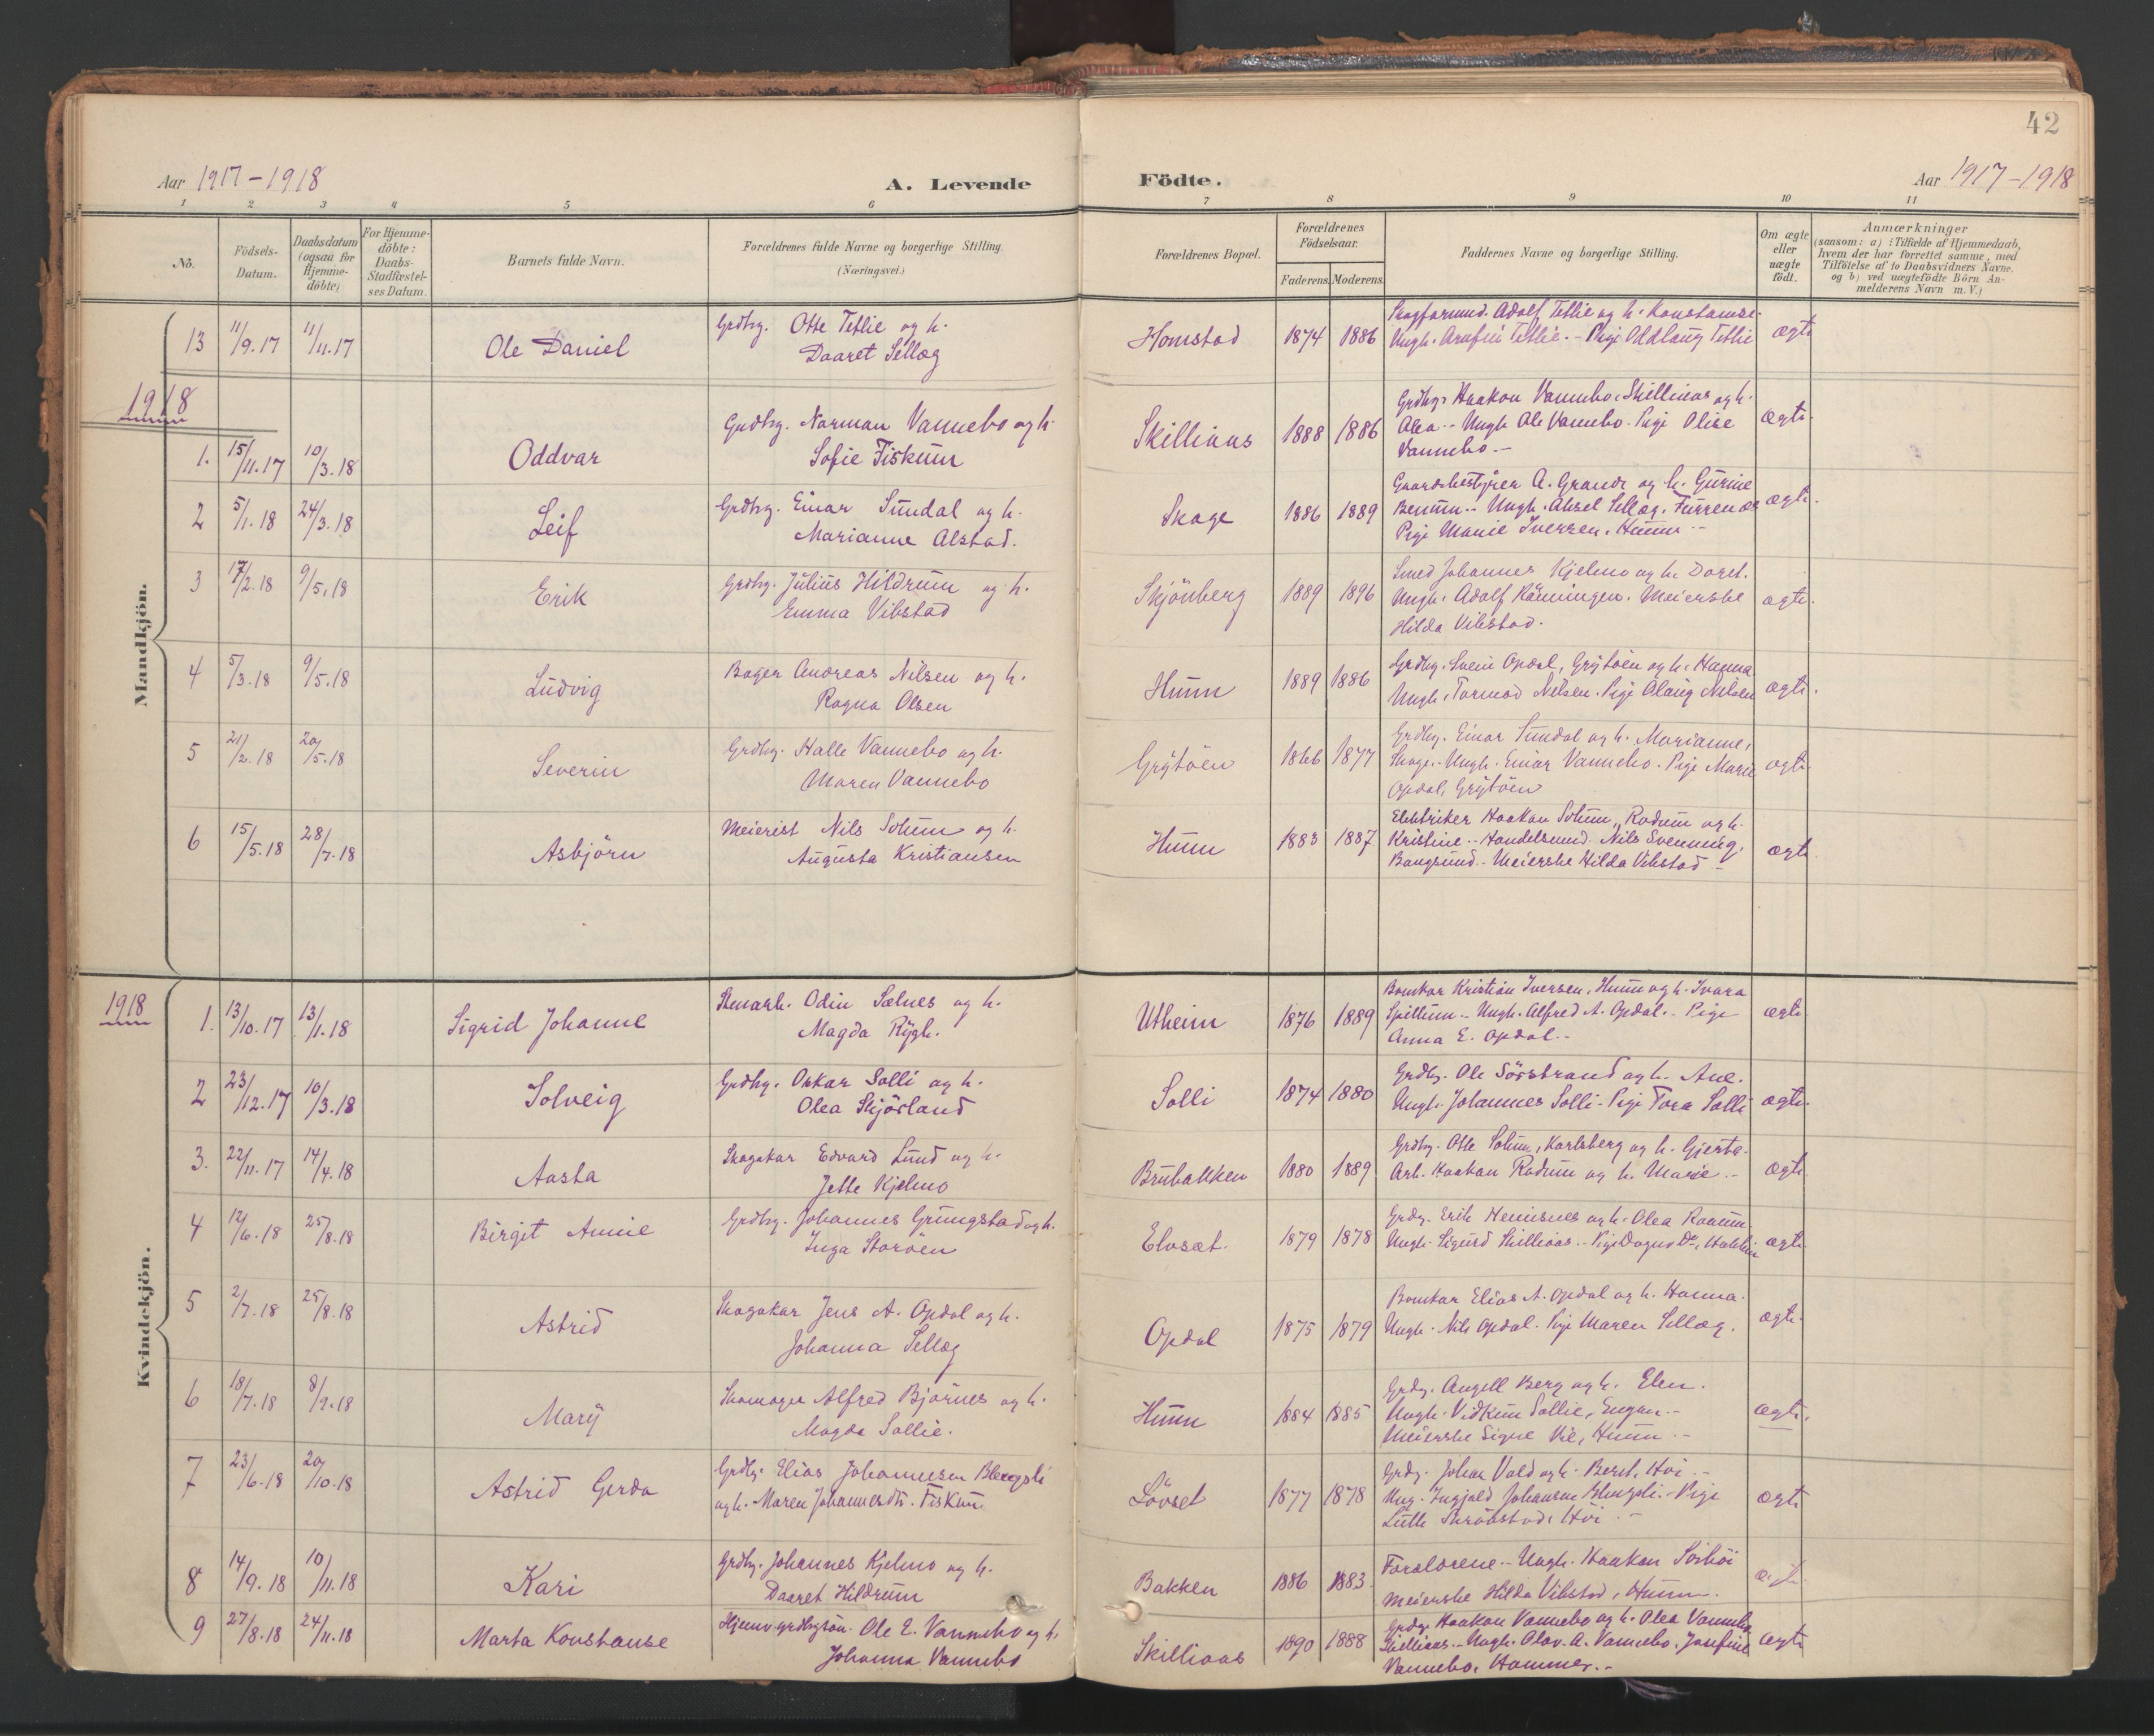 42
Aar 1917-1918
A. Levende Födte.
Aar 1917-1918
1 2 3 4 5 6 7 8 9 10 11
No.
Födsels-Datum.
Daabsdatum (ogsaa for Hjemme-döbte)
For Hjemme-döbte: Daabs-Stadfæstel-ses Datum.
Barnets fulde Navn.
Forældrenes fulde Navne og borgerlige Stilling. (Næringsvei.)
Forældrenes Bopæl.
Forældrenes Födselsaar.
Faderens. Moderens.
Faddernes Navne og borgerlige Stilling.
Om ægte eller uægte födt.
Anmærkninger
(saasom: a) i Tilfælde af Hjemmedaab,
hvem der har forrettet samme, med
Tilföielse af to Daabsvidners Navne,
og b) ved uægtefödte Börn An-
melderens Navn m. V.)
Mandkjön.
13 11/9.17 11/11.17 Ole Daniel Grdbr. Otte Tetlie og h. Daaret Sellæg Homstad 1874 1886 Adolf Tetlie og h. Konstanse. Ungk. Arnfin Tetlie. - Pige Oddlaug Tetlie ægte
1918
1. 15/11.17 10/3.18 Oddvar Grdbr. Norman Vannebo og h. Sofie Fiskum Skilliaas 1888 1886 Grdbr. Haakon Vannebo, Skilliaas og h. Olea - Ungk. Ole Vannebo. Pige Olise Vannebo.- ægte
2 5/1.18 24/3.18 Leif Grdbr. Einar Sundal og h. Marianne Alstad. Skage 1886 1889 Gaardsbestyrer A. Grande og h. Gurine Benum.- Ungk. Aksel Sellæg, Pige Marie Iversen, Hunn - ægte.
3 17/2.18 9/5.18 Erik Grdbr. Julius Hildrum og h. Emma Vibstad Skjönberg 1889 1896 Smed Johannes Kjelmo og h. Daret. Ungk. Adolf Meierske Hilda Vibstad. ægte.
4 5/3.18 9/5.18 Ludvig Bager Andreas Nilsen og h. Ragna Olsen Hunn 1889 1886 Grdbr. Svein Opdal, Grytöen og h. Hanna Ungk. Tormod Nilsen. Pige Olaug Nilsen ægte.
5 21/2.18 20/5.18 Severin Grdbr. Halle Vannebo og h. Maren Vannebo Grytöen 1866 1877 Grdbr. Einar Sundal og h. Marianne, Skage.- Ungk. Einar Vannebo. Pige Marie Opdal, Grytöen ægte
6 15/5.18 28/7.18 Asbjörn Meierist Nils Solum og h. Augusta Kristiansen Hunn 1883 1887 Elektriker Haakon Solum, Rodum og h. Kristine.- Handelsmnd. Nils Svenning, Bangsund.- Meierske Hilda Vibstad - ægte
Kvindekjön.
1918
1. 13/10.17 13/1.18 Sigrid Johanne Odin Sælnes og h. Magda Rygh. Utheim 1876 1889 Kristian Iversen, Hunn og h. Ivara Spillum.- Ungk. Alfred A. Opdal.- Pige Anna E. Opdal.- ægte
2 23/12.17 10/3.18 Solveig Grdbr. Oskar Solli og h. Olea Skjörland Solli 1874 1880 Grdbr. Ole Sörstrand og h. Ane. Ungk. Johannes Solli - Pige Tora Solli ægte.
3. 22/11.17 14/4.18 Aasta Skogskar Edvard Lund og h. Jette Kjelmo Brubakken 1880 1889 Grdbr. Otte Solum, Karlsberg og h. Gjerta. Arb. Haakon Rodum og h. Marie.- ægte
4 12/6.18 25/8.18 Birgit Annie Grdbr. Johannes Grungstad og h. Inga Storöen Elvset. 1879 1878 Grdbr. Erik Hemisnes og h. Olea Ungk. Sigurd Skilliaas - Pige Dagny ægte
5 2/7.18 25/8.18 Astrid Skogskar Jens A. Opdal og h. Johanna Sellæg Opdal 1875 1879 Elias A. Opdal og h. Hanna. Ungk. Nils Opdal. Pige Maren Sellæg. ægte.
6 18/7.18 8/9.18 Mary Skomager Alfred Bjørnes og h. Magda Sollie. Hunn 1884 1885 Grdbr. Angell Berg og h. Elen. Ungk. Vidkun Sollie, Engan.- Meierske Signe Vie, Hunn - ægte.
7 23/6.18 20/10.18 Astrid Gerda Grdbr. Elias Johannesen Blengsli og h. Maren Johannesdtr. Fiskum Lövset 1877 1878 Grdbr. Johan Vold og h. Beret, Höi - Ung. Ingjald Johansen Blengsli.- Pige Höi - ægte
8 14/9.18 10/11.18 Kari Grdbr. Johannes Kjelmo og h. Daaret Hildrum Bakken 1886 1883 Forældrene.- Ungk. Haakon Meierske Hilda Vibstad, Hunn ægte
9 27/8.18 24/11.18 Marta Konstanse Hjemv. grdbrsön. Ole E. Vannebo og h. Johanna Vannebo Skilliaas 1890 1888 Grdbr. Haakon Vannebo og h. Olea Vannebo Skilliaas.- Ungk. Olav A. Vannebo. Josefine Vannebo, Hammer.- ægte